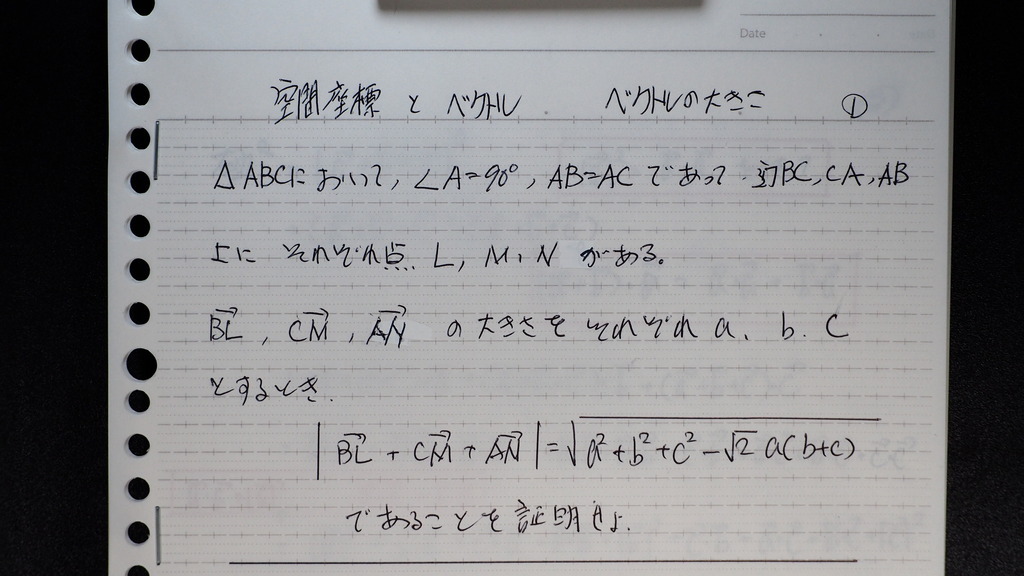 Date
空間座標 と ベクトル ベクトルの大きさ ①
△ABCにおいて, ∠A=90°, AB=AC であって. 辺BC, CA, AB
上に それぞれ点 L, M, N がある。
→BL, →CM, →AN の大きさを それぞれ a, b. c
とするとき.
|→BL + →CM + →AN| = √(a²+b²+c²-√2 a(b+c))
であることを証明せよ.